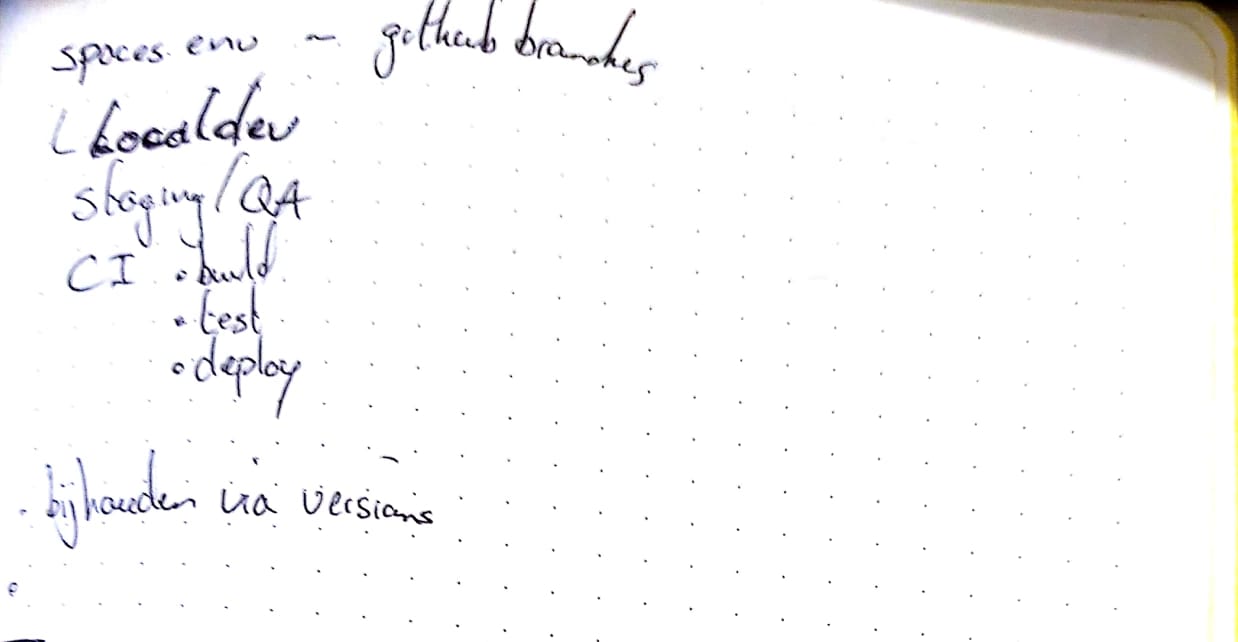 spaces env ~ github branches
└ Localdev
staging/QA
CI • build
• test
• deploy
• bijhouden via versions